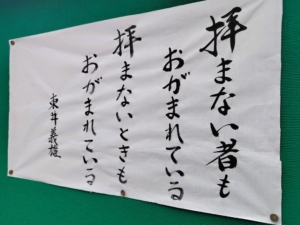 拝まない者も
おがまれている
拝まないときも
おがまれている
東井義雄